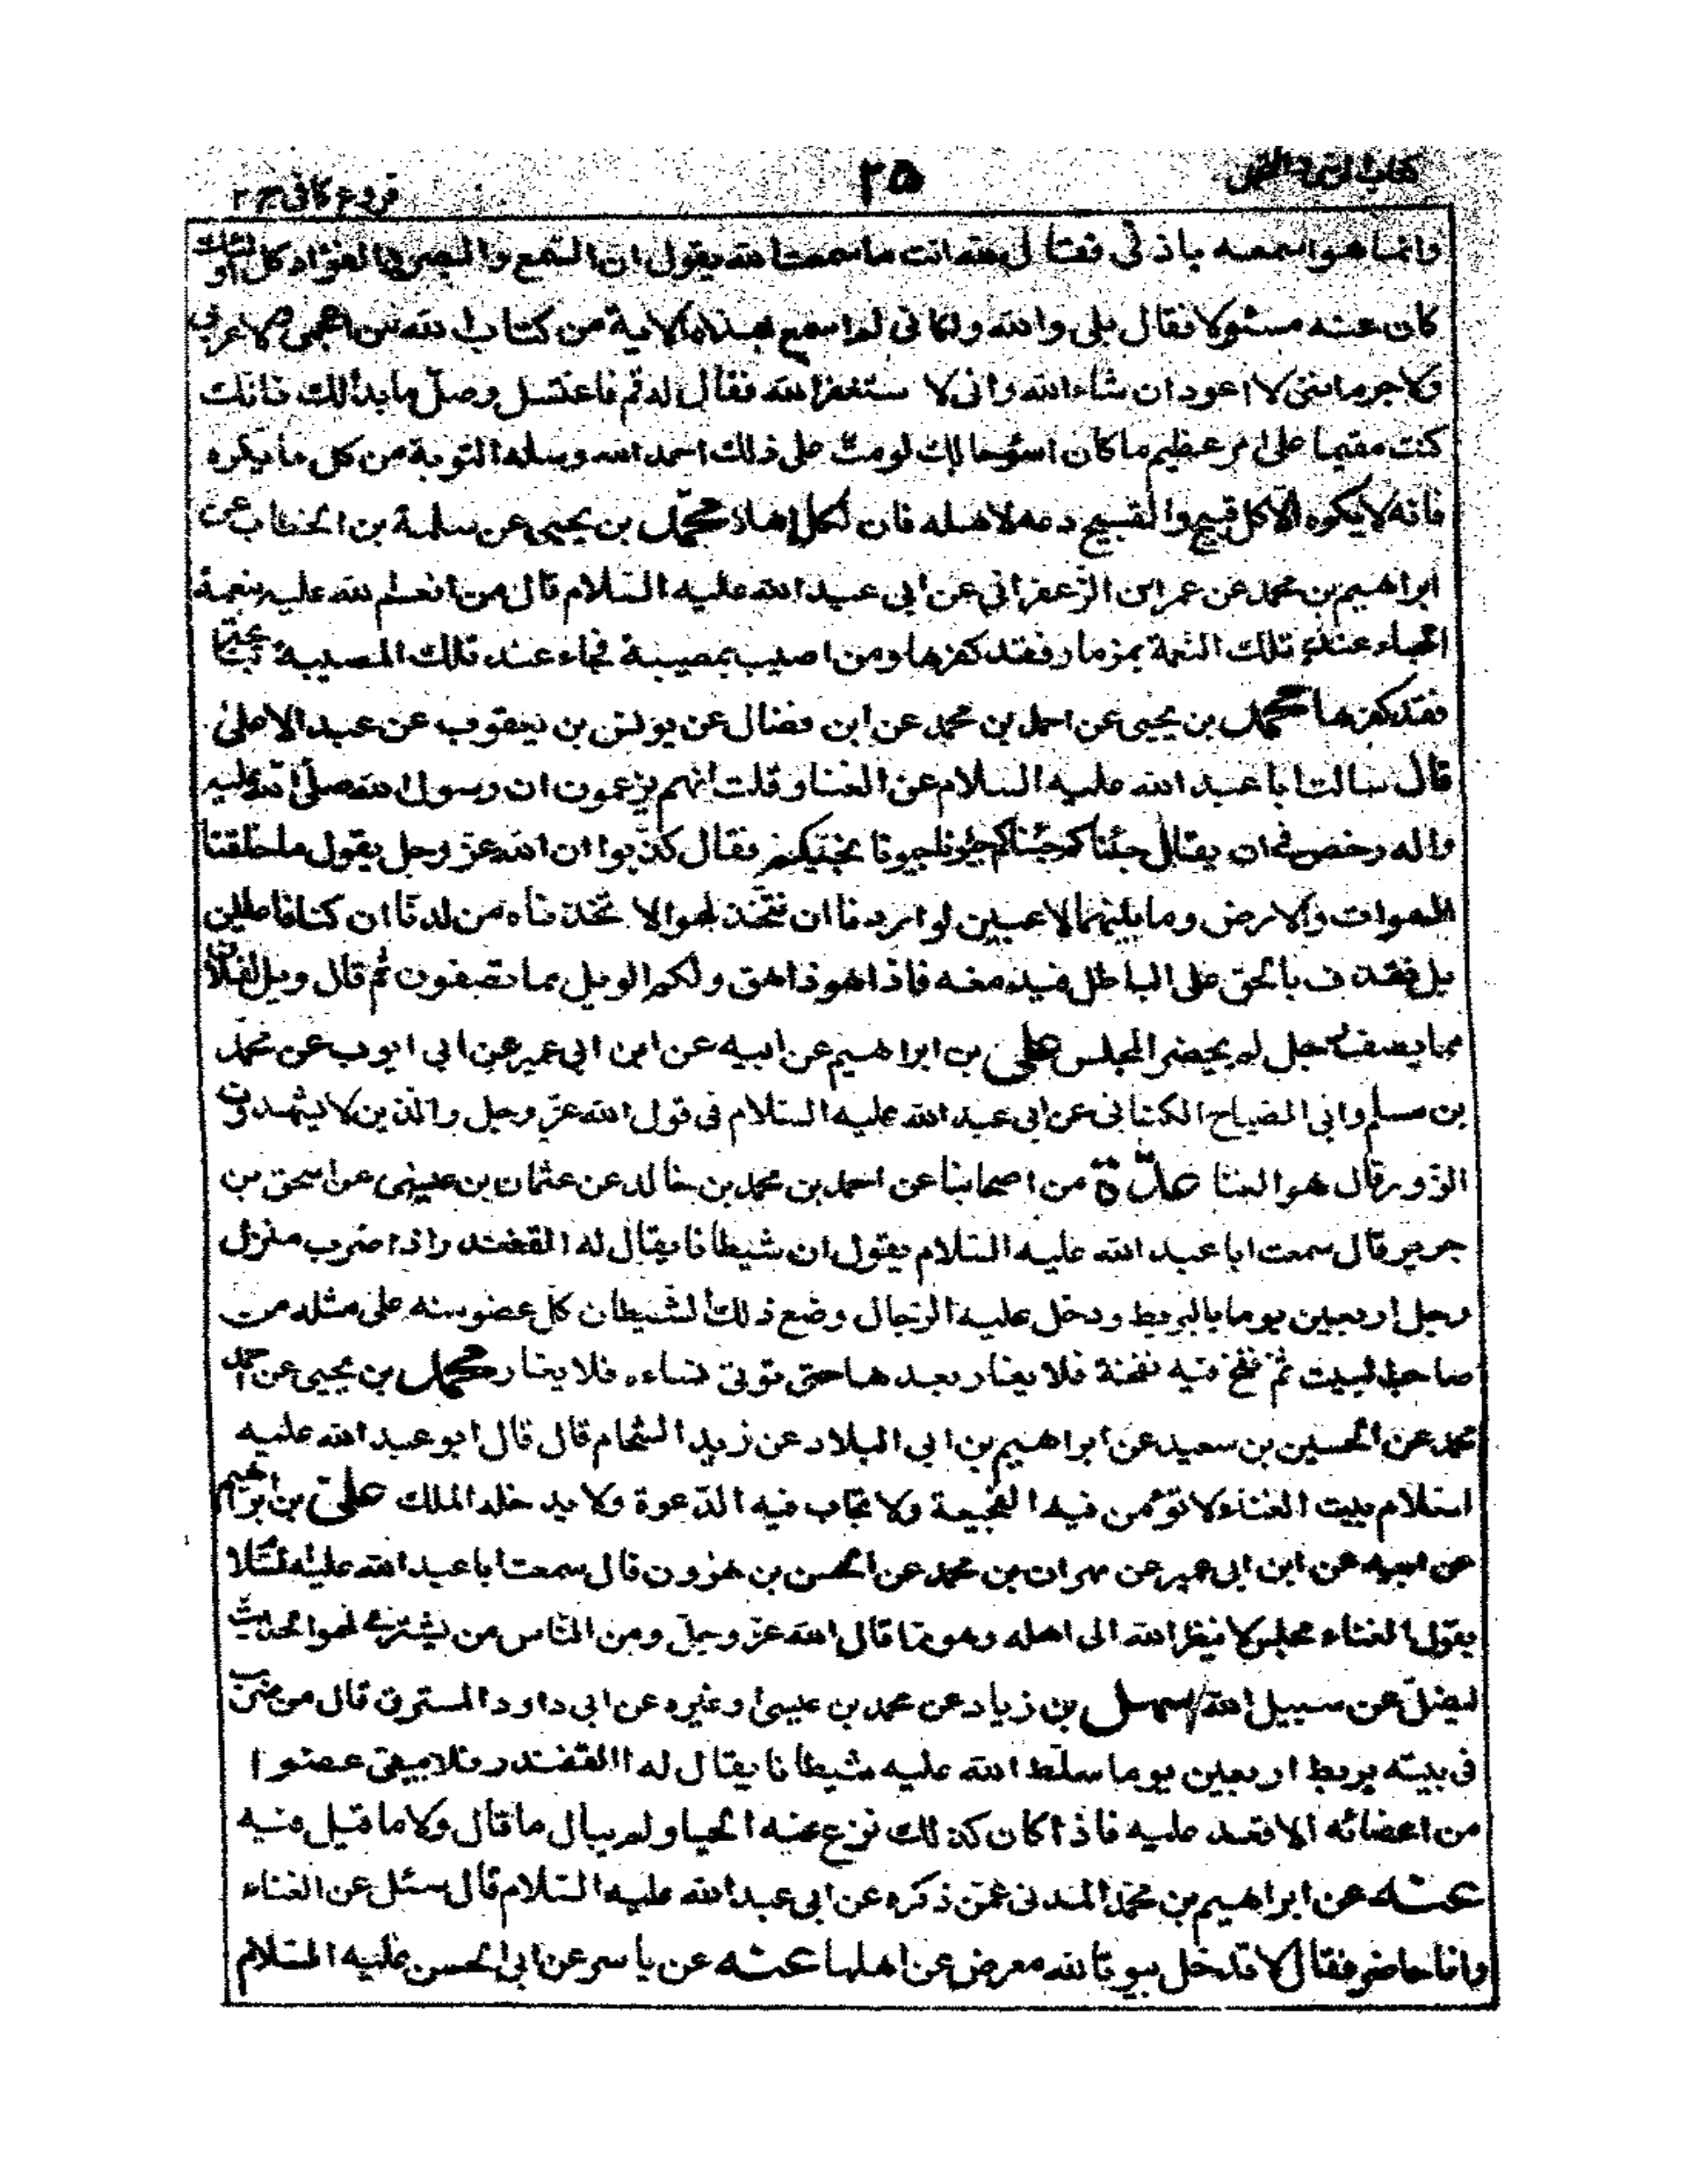 ٢٥
فروع كافى ج ٢
وانما هو اسمعه باذنى فقال لله انت ما سمعت الله يقول ان السمع والبصر والفؤاد كل اولئك
كان عنه مسئولا فقال بلى والله ولكانى لم اسمع بهذه الاية من كتاب الله من اعجمى ولا عربى
ولا جرم اننى لا اعود ان شاء الله وانى لا ستغفر الله فقال له قم فاغتسل وصل ما بدا لك فانك
كنت مقيما على امر عظيم ما كان اسوء حالك لو مت على ذلك احمد الله وسله التوبة من كل ما يكره
فانه لا يكره الا كل قبيح والقبيح دعه لاهله فان لكل اهلا محمد بن يحيى عن سلمة بن الخطاب عن
ابراهيم بن محمد عن عمران الزعفرانى عن ابى عبد الله عليه السلام قال من انعم الله عليه بنعمة
فجاء عند تلك النعمة بمزمار فقد كفرها ومن اصيب بمصيبة فجاء عند تلك المصيبة
فقد كفرها محمد بن يحيى عن احمد بن محمد عن ابن فضال عن يونس بن يعقوب عن عبد الاعلى
قال سالت ابا عبد الله عليه السلام عن الغنا وقلت انهم يزعمون ان رسول الله صلى الله عليه
واله رخص فى ان يقال جئناكم جئناكم حيونا حيونا نحييكم فقال كذبوا ان الله عز وجل يقول ما خلقنا
السموات والارض وما بينهما لاعبين لو اردنا ان نتخذ لهوا لا تخذناه من لدنا ان كنا فاعلين
بل نقذف بالحق على الباطل فيدمغه فاذا هو زاهق ولكم الويل مما تصفون ثم قال ويل لفلان
مما يصف رجل لم يحضر المجلس على بن ابراهيم عن ابيه عن ابن ابى عمير عن ابى ايوب عن محمد
بن مسلم وابى الصباح الكنانى عن ابى عبد الله عليه السلام فى قول الله عز وجل والذين لا يشهدون
الزور قال هو الغنا عدة من اصحابنا عن احمد بن محمد بن خالد عن عثمان بن عيسى عن اسحق بن
جرير قال سمعت ابا عبد الله عليه السلام يقول ان شيطانا يقال له القفندر اذا ضرب منزل
رجل اربعين يوما بالبربط ودخل عليه الرجال وضع ذلك الشيطان كل عضو منه على مثله من
صاحب البيت ثم نفخ فيه نفخة فلا يغار بعدها حتى توتى نساءه فلا يغار محمد بن يحيى عن احمد
محمد عن الحسين بن سعيد عن ابراهيم بن ابى البلاد عن زيد الشحام قال قال ابو عبد الله عليه
السلام بيت الغناء لا تؤمن فيه الفجيعة ولا تجاب فيه الدعوة ولا يدخله الملك على بن ابراهيم
عن ابيه عن ابن ابى عمير عن مهران بن محمد عن الحسن بن هرون قال سمعت ابا عبد الله عليه السلام
يقول الغناء مجلس لا ينظر الله الى اهله وهو مما قال الله عز وجل ومن الناس من يشترى لهو الحديث
ليضل عن سبيل الله سهل بن زياد عن محمد بن عيسى وغيره عن ابى داود المسترق قال من ضرب
فى بيته بربط اربعين يوما سلط الله عليه شيطانا يقال له القفندر فلا يبقى عضوا
من اعضائه الا قعد عليه فاذا كان كذلك نزع عنه الحيا ولم يبال ما قال ولا ما قيل فيه
عنه عن ابراهيم بن محمد المدنى عمن ذكره عن ابى عبد الله عليه السلام قال سئل عن الغناء
وانا حاضر فقال لا تدخل بيوتا الله معرض عن اهلها عنه عن ياسر عن ابى الحسن عليه السلام